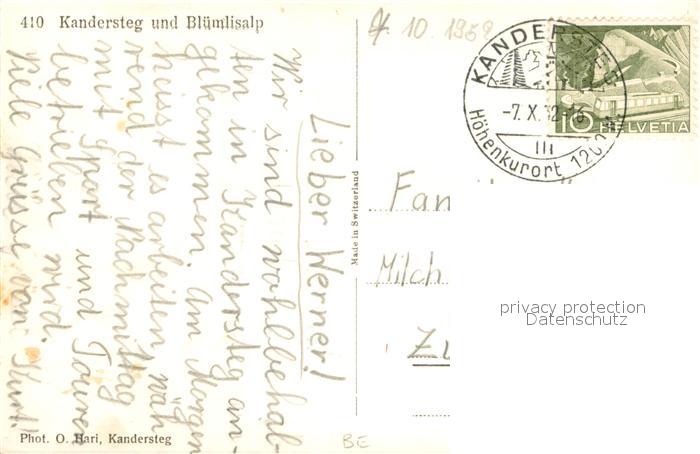 410 Kandersteg und Blümlisalp
7. 10. 1952
KANDERSTEG
-7.X.52-16
III
Höhenkurort 1200 m
10 HELVETIA
Lieber Werner!
Wir sind wohlbehal-
ten in Kandersteg an-
gekommen. Am Morgen
heisst es arbeiten wäh
rend der Nachmittag
mit Sport und Touren
betrieben wird.
Viele Grüsse von Kurt!
Made in Switzerland
Fam
Milch
Zu
privacy protection
Datenschutz
Phot. O. Hari, Kandersteg
BE